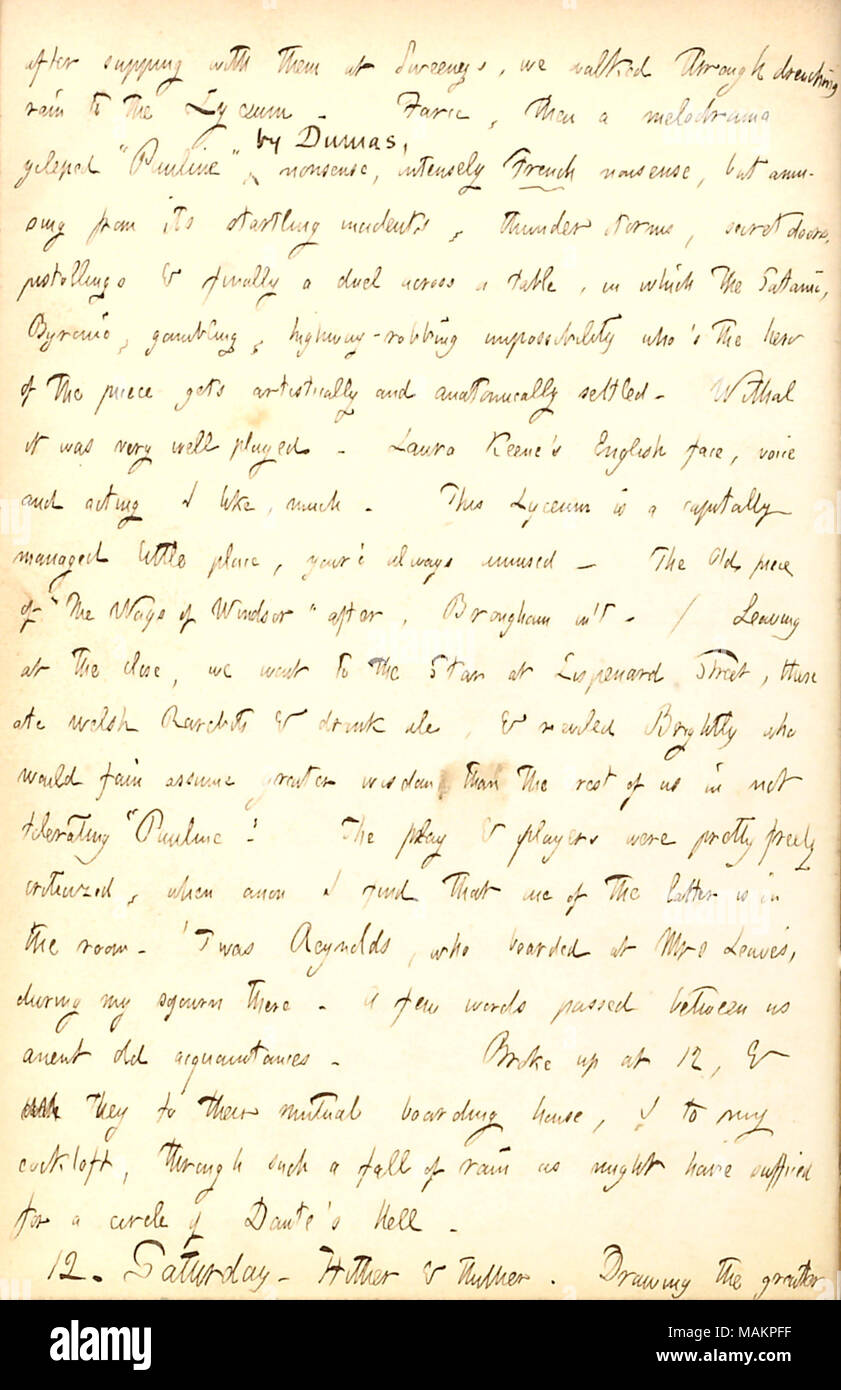 after supping with them at Sweeneys, we walked through drenching
rain to the Lyceum. Farce, then a melodrama
by Dumas,
ycleped "Pauline", nonsense, intensely French nonsense, but amu-
sing from its startling incidents, thunder storms, secret doors,
pistollings & finally a duel across a table, in which the Satanic,
Byronic, gambling, highway-robbing impossibility who's the hero
of the piece gets artistically and anatomically settled. Withal
it was very well played. Laura Keene's English face, voice
and acting I like, much. This Lyceum is a capitally
managed little place, your'e always amused. The old piece
of "The Wags of Windsor" after, Brougham in't. / Leaving
at the close, we went to the Star at Lispenard Street, there
ate welsh Rarebits & drank ale, & reviled Brightly who
would fain assume greater wisdom than the rest of us in not
tolerating "Pauline". The play & players were pretty freely
criticized, when anon I find that one of the latter is in
the room. 'Twas Reynolds, who boarded at Mrs Leaves,
during my sojourn there. A few words passed between us
anent old acquaintances. Broke up at 12, &
they to their mutual boarding house, I to my
cockloft, through such a fall of rain as might have sufficed
for a circle of Dante's Hell.
12. Saturday. Hither & thither. Drawing the greater
alamy
alamy
Image ID: MAKPFF
www.alamy.com